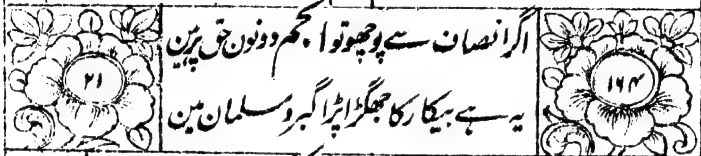 ۱۶۴
اگر انصاف سے پوچھو تو انجم دونون حق پر ہین
یہ ہے بیکار کا جھگڑا پڑا گبر و مسلمان مین
۲۱